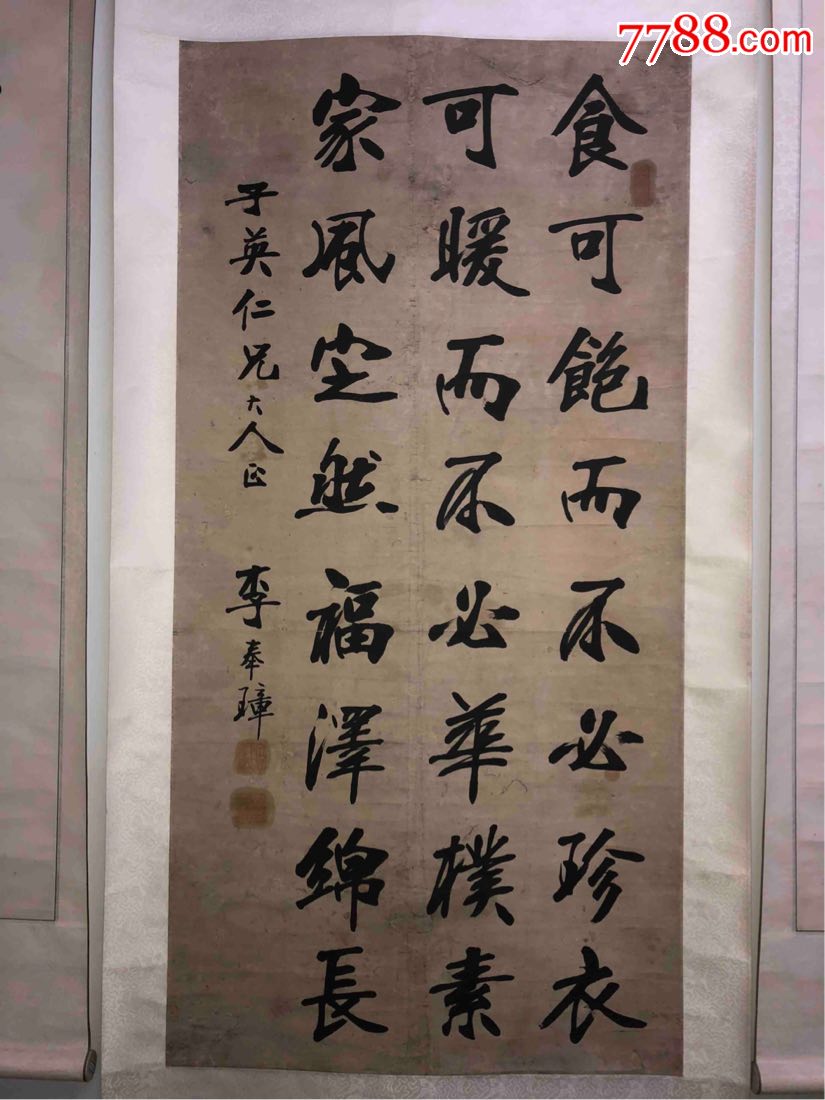 7788.com
食可飽而不必珍衣
可暖而不必華樸素
家風空然福澤綿長
子英仁兄大人正
李奉璋